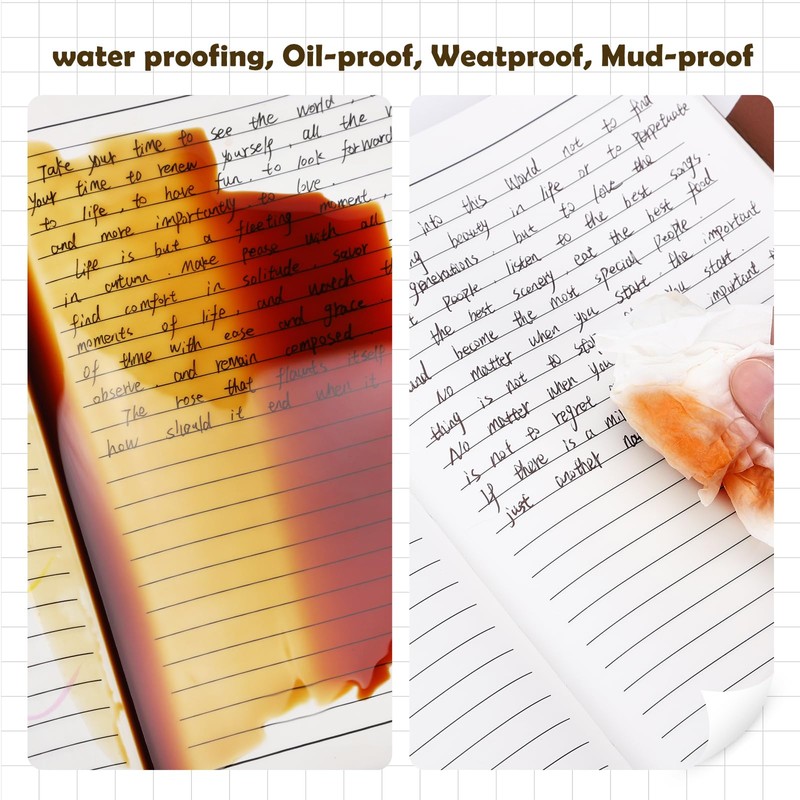 water proofing, Oil-proof, Weatproof, Mud-proof
Take your time to see the world.
your time to renew yourself, all the
to life, to have fun, to look forward
and more importantly to love.
Life is but a fleeting moment,
in autumn. Make pease with all
find comfort in solitude, savor
moments of life, and watch the
of time with ease and grace.
observe, and remain composed.
The rose that flaunts itself
how should it end when it
not to find
into this world or to Perpetuate
beauty in life to love the
generations, but to the best songs.
People, listen to the best food
the best scenery, eat People.
and become the most special the important
No matter when you start, you start.
thing is not to important
No matter when you
is not to regret
If there is a
just another